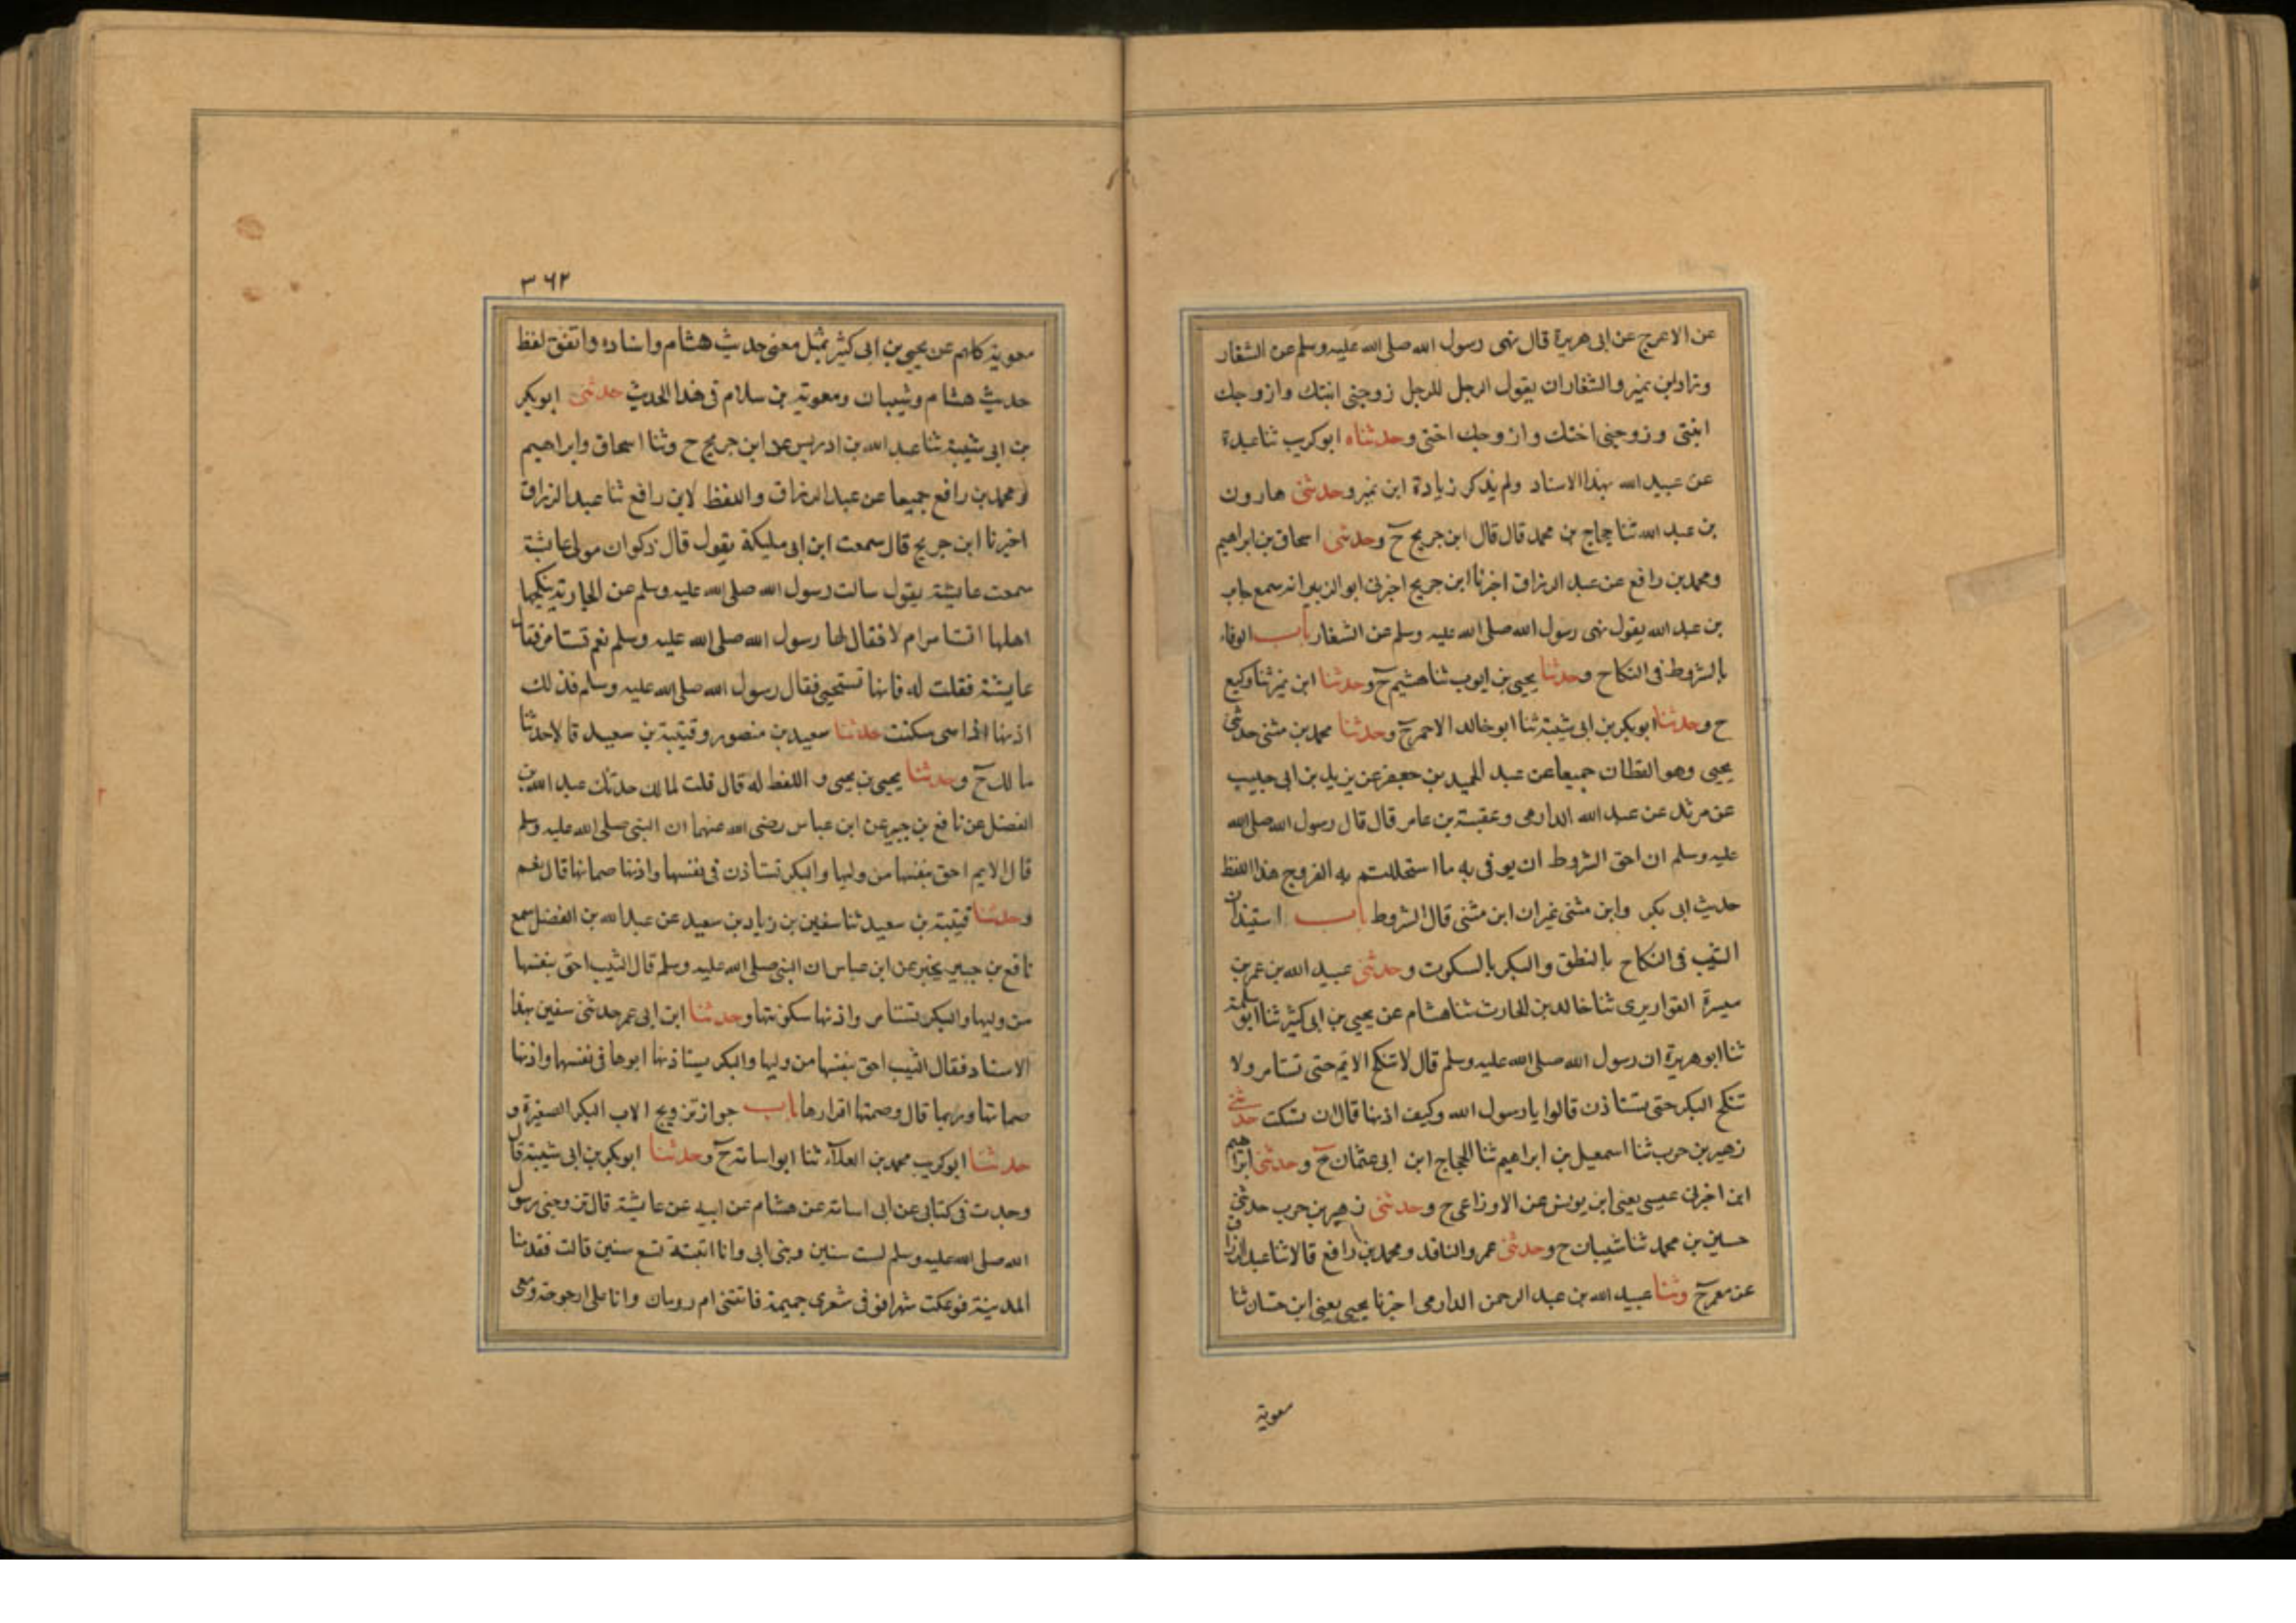 عن الاعرج عن ابى هريرة قال نهى رسول الله صلى الله عليه وسلم عن الشغار
وزاد ابن نمير والشغار ان يقول الرجل للرجل زوجنى ابنتك وازوجك
ابنتى وزوجنى اختك وازوجك اختى وحدثناه ابوكريب ثنا عبدة
عن عبيد الله بهذا الاسناد ولم يذكر زيادة ابن نمير وحدثنى هارون
بن عبد الله ثنا حجاج بن محمد قال قال ابن جريج ح وحدثنى اسحاق بن ابراهيم
ومحمد بن رافع عن عبد الرزاق اخبرنا ابن جريج اخبرنى ابو الزبير انه سمع جابر
بن عبد الله يقول نهى رسول الله صلى الله عليه وسلم عن الشغار باب الوفاء
بالشروط فى النكاح وحدثنا يحيى بن ايوب ثنا هشيم ح وحدثنا ابن نمير ثنا وكيع
ح وحدثنا ابوبكر بن ابى شيبة ثنا ابو خالد الاحمر ح وحدثنا محمد بن مثنى حدثنى
يحيى وهو القطان جميعا عن عبد الحميد بن جعفر عن يزيد بن ابى حبيب
عن مرثد عن عبد الله الدارمى وعقبة بن عامر قال قال رسول الله صلى الله
عليه وسلم ان احق الشروط ان يوفى به ما استحللتم به الفروج هذا اللفظ
حديث ابى بكر وابن مثنى غير ان ابن مثنى قال الشروط باب استيذان
الثيب فى النكاح بالنطق والبكر بالسكوت وحدثنى عبيد الله بن عمر بن
ميسرة القواريرى ثنا خالد بن الحارث ثنا هشام عن يحيى بن ابى كثير ثنا ابو سلمة
ثنا ابو هريرة ان رسول الله صلى الله عليه وسلم قال لا تنكح الايم حتى تستامر ولا
تنكح البكر حتى تستاذن قالوا يا رسول الله وكيف اذنها قال ان تسكت حدثنى
زهير بن حرب ثنا اسمعيل بن ابراهيم ثنا الحجاج ابن ابى عثمان ح وحدثنى ابراهيم
ابن اخبرنى عيسى يعنى ابن يونس عن الاوزاعى ح وحدثنى زهير بن حرب حدثنى
حسين بن محمد ثنا شيبان ح وحدثنى عمرو الناقد ومحمد بن رافع قالا ثنا عبد الرزاق
عن معمر ح وثنا عبيد الله بن عبد الرحمن الدارمى اخبرنا يحيى يعنى ابن حسان ثنا
معوية
٣٦٢
معوية كلهم عن يحيى بن ابى كثير بمثل معنى حديث هشام واسناده واتفق لفظ
حديث هشام وشيبان ومعوية بن سلام فى هذا الحديث حدثنى ابوبكر
بن ابى شيبة ثنا عبد الله بن ادريس عن ابن جريج ح وثنا اسحاق وابراهيم
ومحمد بن رافع جميعا عن عبد الرزاق واللفظ لابن رافع ثنا عبد الرزاق
اخبرنا ابن جريج قال سمعت ابن ابى مليكة يقول قال ذكوان مولى عايشة
سمعت عايشة يقول سالت رسول الله صلى الله عليه وسلم عن الجارية ينكحها
اهلها اتستامر ام لا فقال لها رسول الله صلى الله عليه وسلم نعم تستامر فقالت
عايشة فقلت له فانها تستحيى فقال رسول الله صلى الله عليه وسلم فذلك
اذنها اذا سى سكتت حدثنا سعيد بن منصور وقتيبة بن سعيد قالا حدثنا
مالك ح وحدثنا يحيى بن يحيى واللفظ له قال قلت لمالك حدثك عبد الله بن
الفضل عن نافع بن جبير عن ابن عباس رضى الله عنهما ان النبى صلى الله عليه وسلم
قال الايم احق بنفسها من وليها والبكر تستاذن فى نفسها واذنها صماتها قال نعم
وحدثنا قتيبة بن سعيد ثنا سفين بن زياد بن سعيد عن عبد الله بن الفضل سمع
نافع بن جبير يخبر عن ابن عباس ان النبى صلى الله عليه وسلم قال الثيب احق بنفسها
من وليها والبكر تستامر واذنها سكوتها وحدثنا ابن ابى عمر حدثنى سفين بهذا
الاسناد فقال الثيب احق بنفسها من وليها والبكر يستاذنها ابوها فى نفسها واذنها
صماتها وربما قال وصمتها اقرارها باب جواز تزويج الاب البكر الصغيرة و
حدثنا ابوكريب محمد بن العلاء ثنا ابو اسامة ح وحدثنا ابوبكر بن ابى شيبة قال
وجدت فى كتابى عن ابى اسامة عن هشام عن ابيه عن عايشة قال تزوجنى رسول
الله صلى الله عليه وسلم لست سنين وبنى ابى وانا ابنة تسع سنين قالت فقدمنا
المدينة فوعكت شهرا فوفى شعرى جميمة فاتتنى ام رومان وانا على ارجوحة ومعى